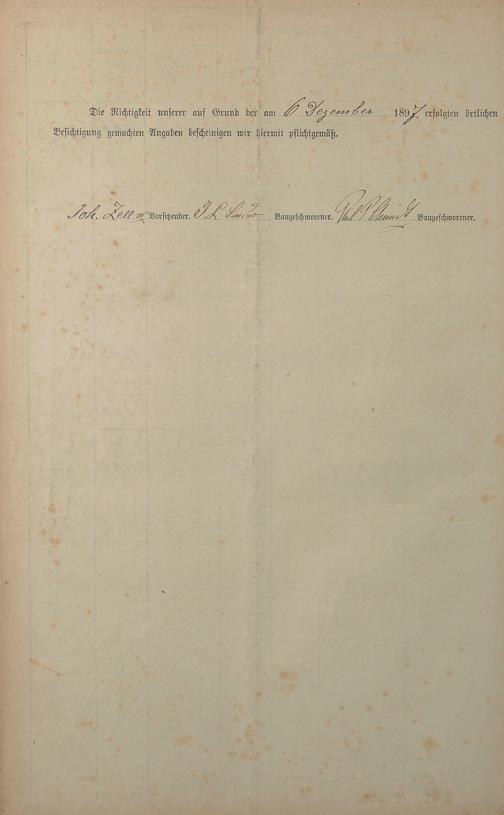 Die Richtigkeit unserer auf Grund der am 6 Dezember 1897 erfolgten örtlichen
Besichtigung gemachten Angaben bescheinigen wir hiermit pflichtgemäß.
Joh. Zell Vorsitzender. Baugeschworener. Baugeschworener.